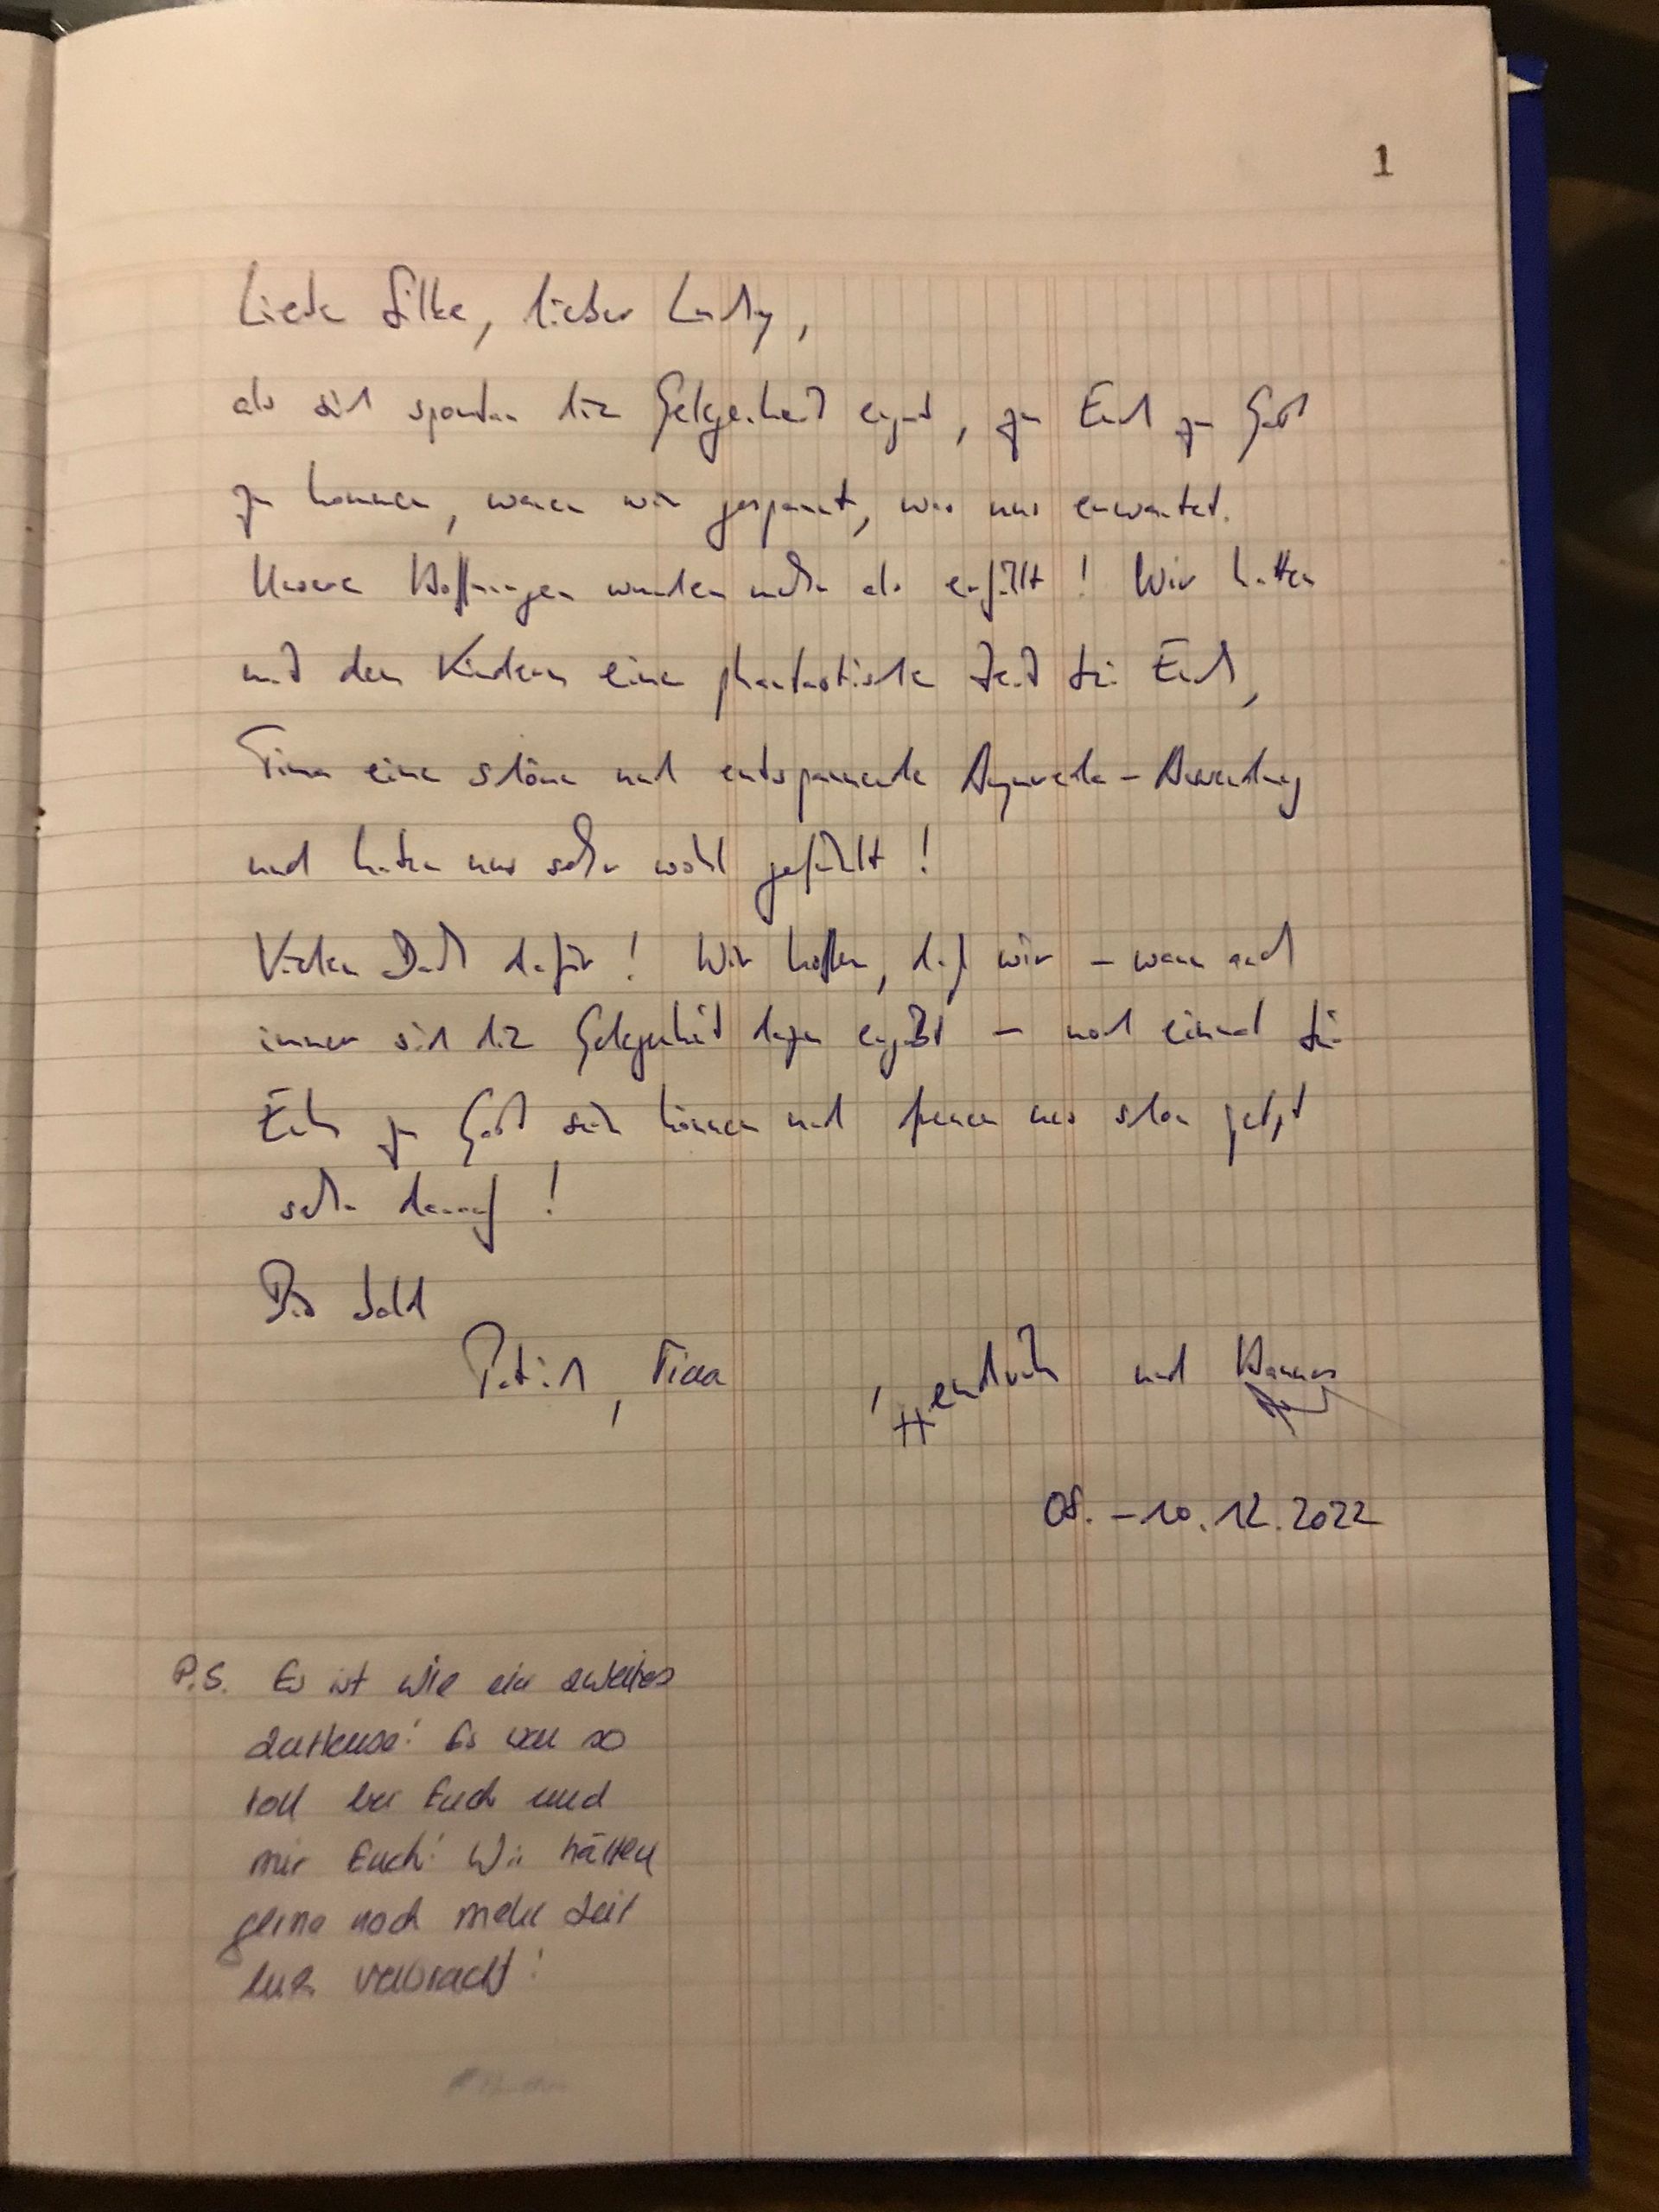 1
Liebe Silke, lieber
als sich spontan die Gelegenheit ergab, zu Euch zu Gast
zu kommen, waren wir gespannt, was uns erwartet.
Unsere Hoffnungen wurden mehr als erfüllt! Wir hatten
mit den Kindern eine phantastische Zeit bei Euch,
Tina eine schöne und entspannende Ayurveda-Anwendung
und haben uns sehr wohl gefühlt!
Vielen Dank dafür! Wir hoffen, daß wir – wann auch
immer sich die Gelegenheit dazu ergibt – noch einmal bei
Euch zu Gast sein können und freuen uns schon jetzt
sehr darauf!
Bis bald
Patrick, Tina, Hendrik und Hannes
08.–10.12.2022
P.S. Es ist wie ein zweites
Zuhause! Es war so
toll bei Euch und
mit Euch! Wir hätten
gerne noch mehr Zeit
hier verbracht!